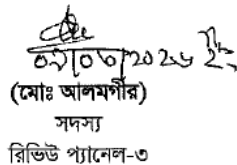 ০৯/০৬/2026 ইং
(মোঃ আলমগীর)
সদস্য
রিভিউ প্যানেল-৩